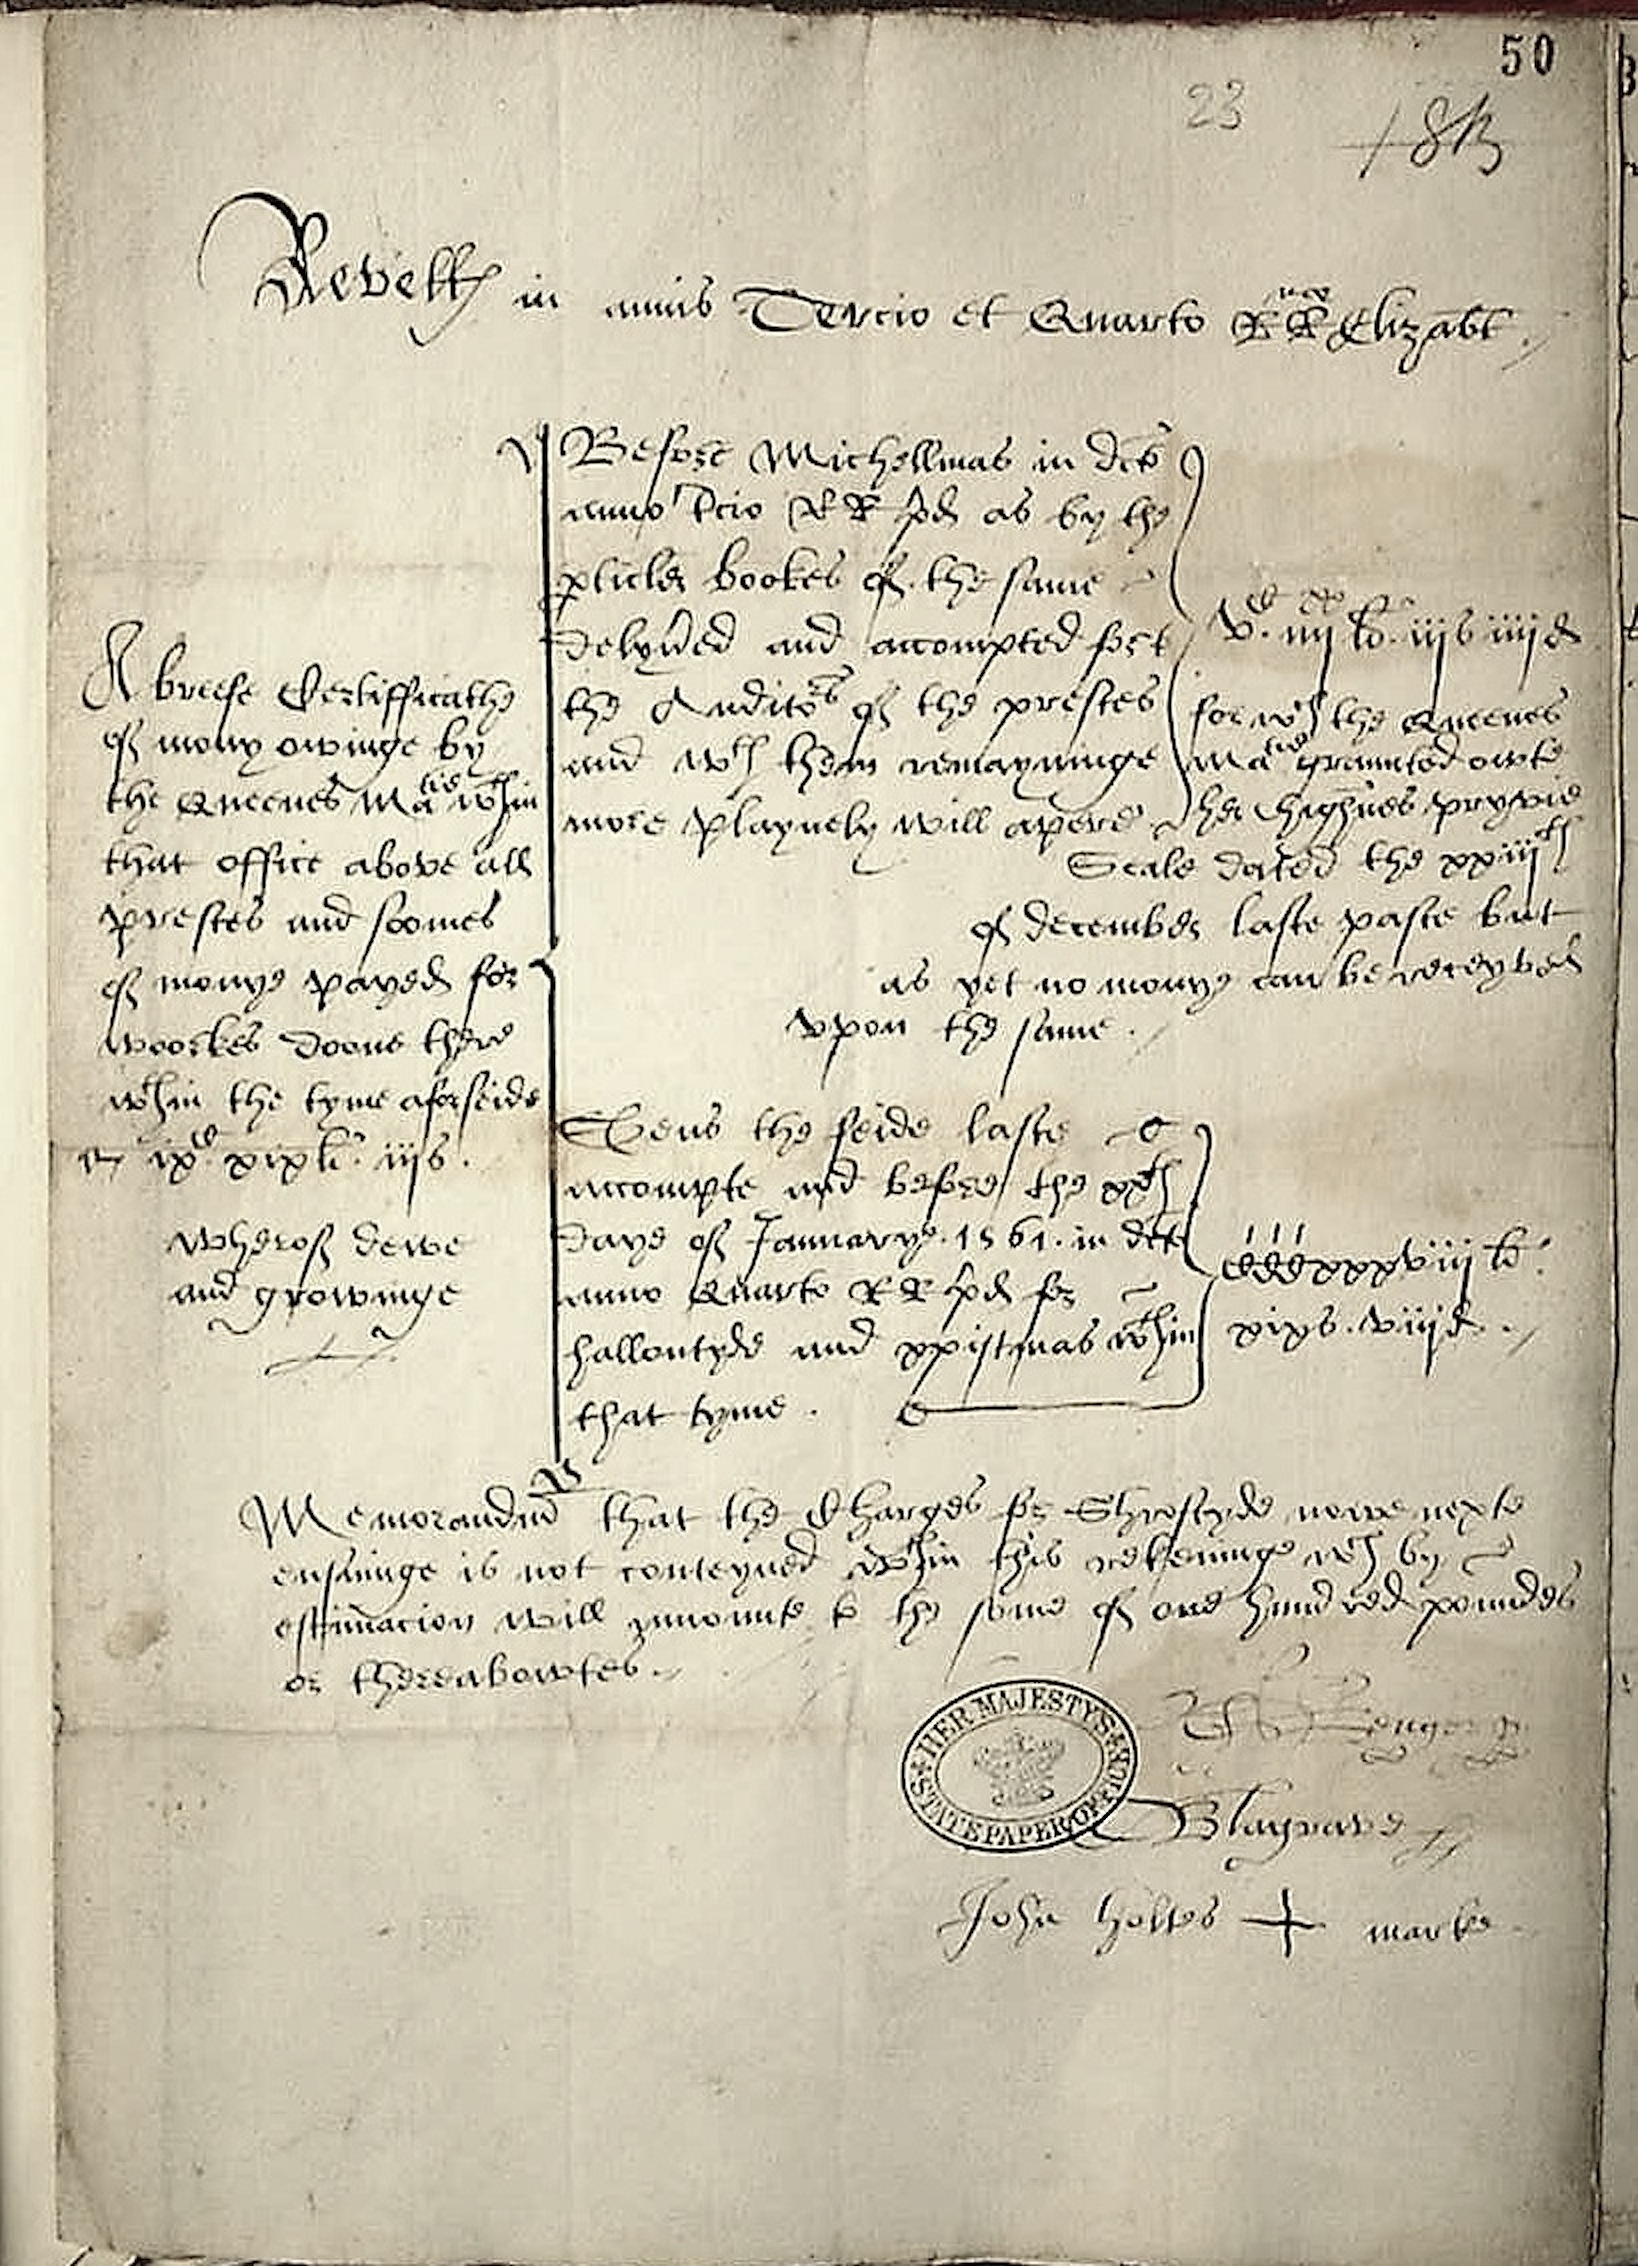 50
23
Revell in annis Tercio et Quarto RR nre Elizabt
A breefe Certifficathe
of mony owinge by
the Queenes Matie wthin
that office above all
prestes and soomes
of monye payed for
woorkes doone there
wthin the tyme aforseide
ixC xixli iijs.
wherof dewe
and growinge
Before Michellmas in dcto
anno tcio RR pd as by the
pticler bookes of the same
delyved and accompted fort
the Auditors of the prestes
and wth them remayninge
more playnely will apere
vC iiijxx li iijs iiijd
for wch the Queenes
Matie graunted owte
her highnes pryvie
Seale dated the xxiijth
of december laste paste but
as yet no monye can be receyved
vpon the same.
Sens the seide laste
accompte and before the xxth
daye of Januarye 1561. in dcto
anno Quarto RR pd for
hallontyde and xpistmas wthin
that tyme.
CCCxxxviij li
xixs. viijd.
Memorandum that the Charges for Shroftyde nowe nexte
ensuinge is not conteyned wthin this rekeninge wch by
estimacion will amounte to the some of one hundred poundes
or thereabowtes.
HER MAJESTY'S STATE PAPER OFFICE
Blagrave
John holtes + marke